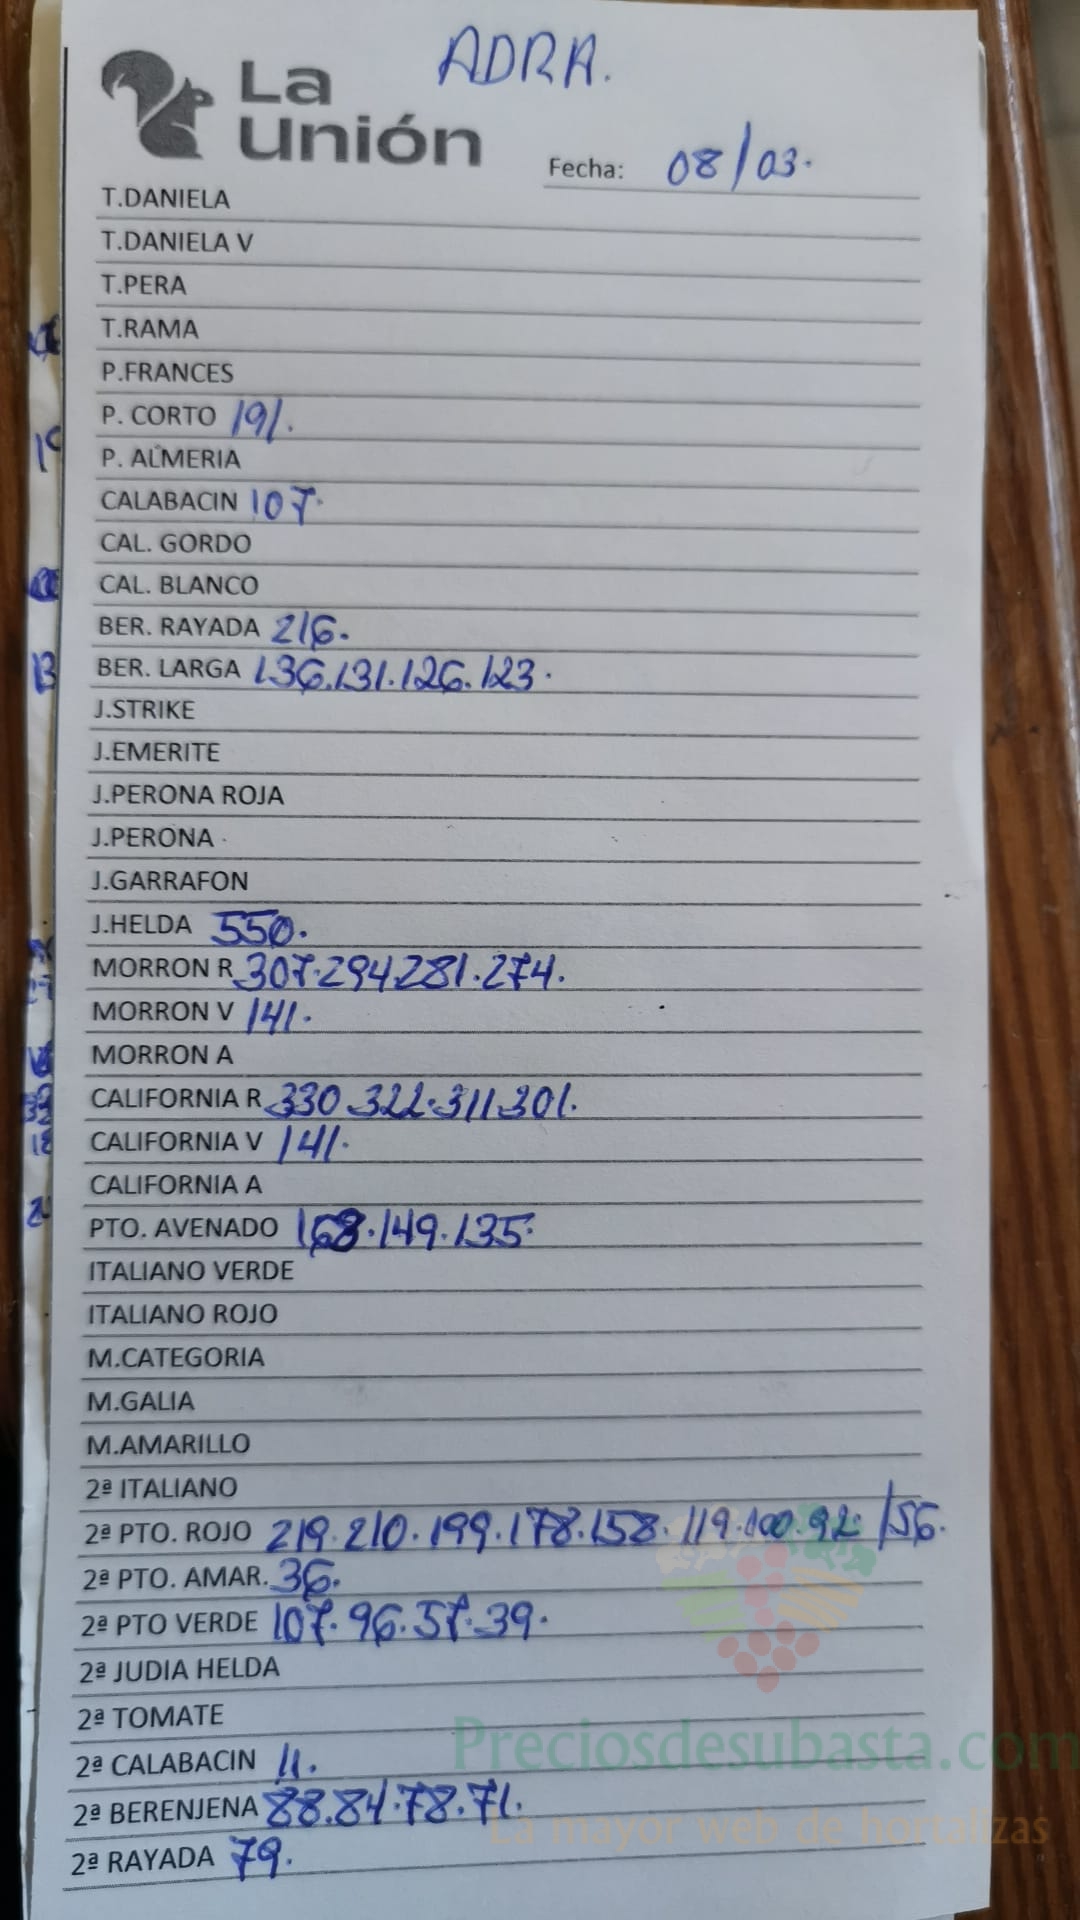 ADRA.
La
Unión
Fecha: 08/03.
T.DANIELA
T.DANIELA V
T.PERA
T.RAMA
P.FRANCES
P. CORTO 191.
P. ALMERIA
CALABACIN 107.
CAL. GORDO
CAL. BLANCO
BER. RAYADA 216.
BER. LARGA 136.131.126.123.
J.STRIKE
J.EMERITE
J.PERONA ROJA
J.PERONA
J.GARRAFON
J.HELDA 550.
MORRON R 307.294.281.274.
MORRON V 141.
MORRON A
CALIFORNIA R 330.322.311.301.
CALIFORNIA V 141.
CALIFORNIA A
PTO. AVENADO 168.149.135.
ITALIANO VERDE
ITALIANO ROJO
M.CATEGORIA
M.GALIA
M.AMARILLO
2ª ITALIANO
2ª PTO. ROJO 219.210.199.178.158.119.100.92. /56.
2ª PTO. AMAR. 36.
2ª PTO VERDE 107.96.57.39.
2ª JUDIA HELDA
2ª TOMATE
Preciosdesubasta.com
2ª CALABACIN 11.
2ª BERENJENA 88.84.78.71.
La mayor web de hortalizas
2ª RAYADA 79.